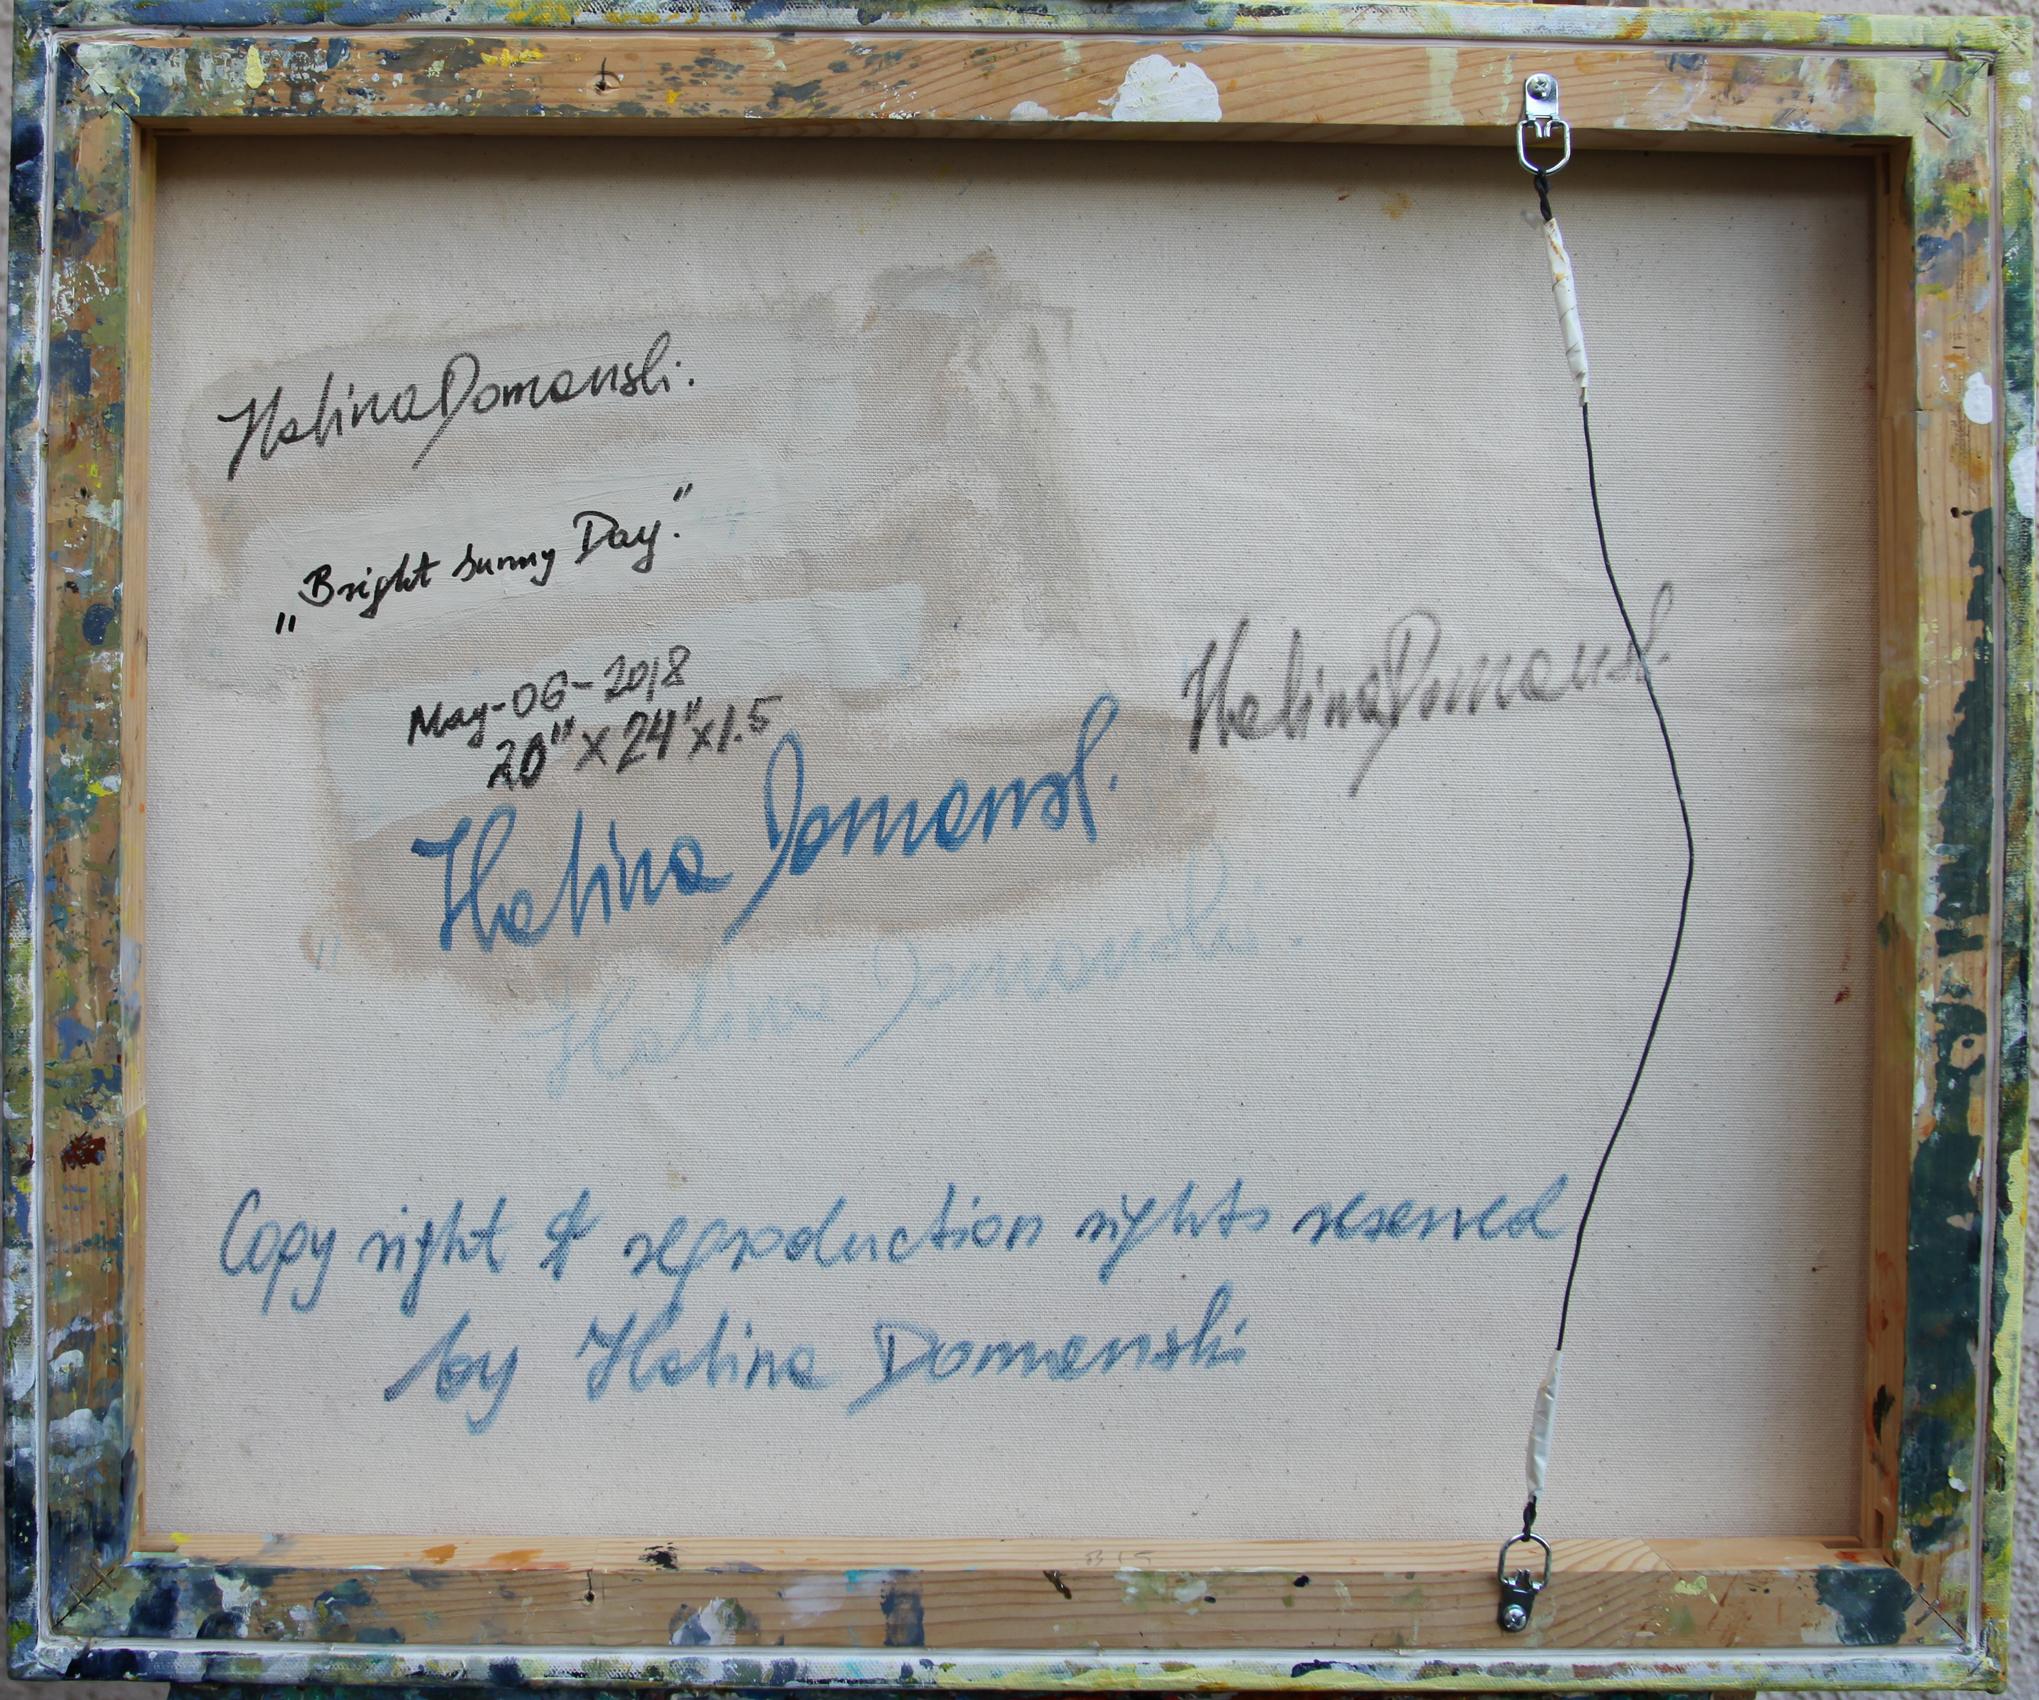 Halina Domanski.
„Bright sunny Day."
May-06-2018
20" x 24" x 1.5
Halina Domansk.
Halina Domansk.
Halina Domanski.
Copy right & reproduction rights reserved
by Halina Domanski